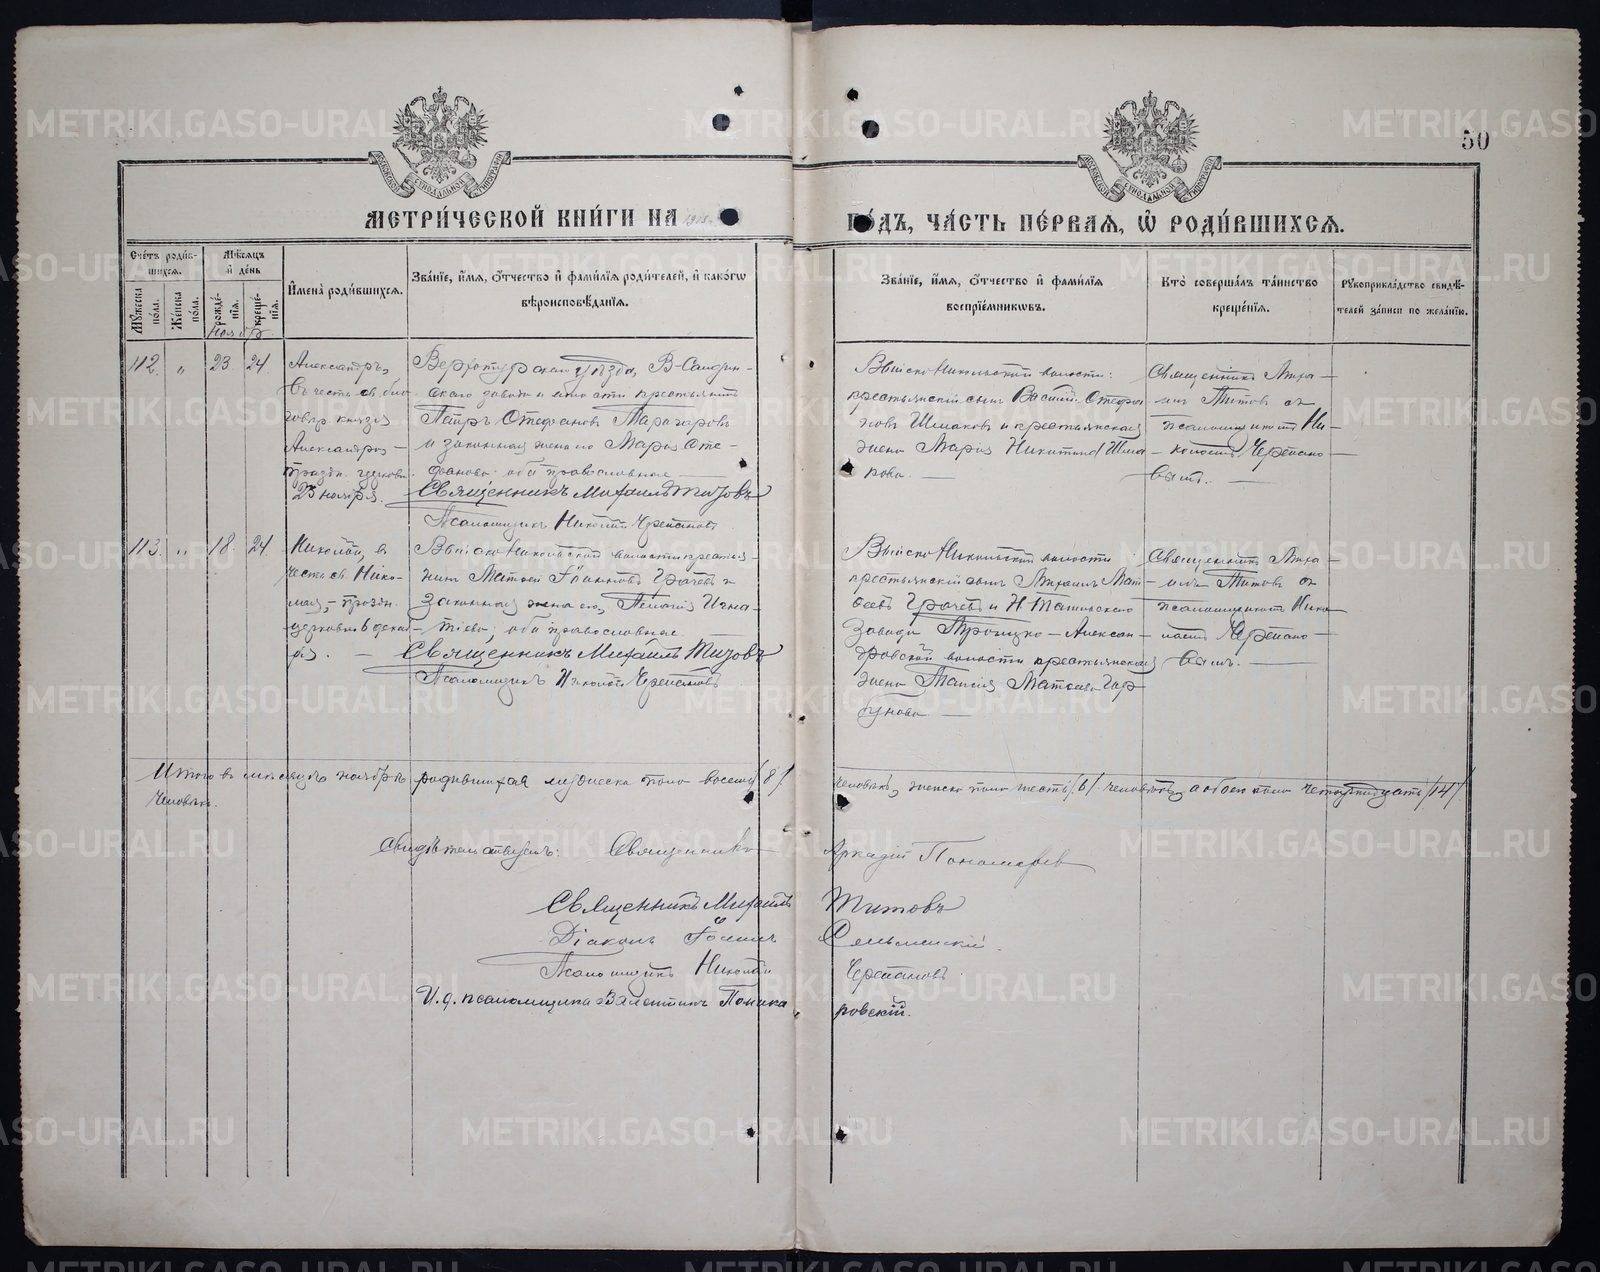 50
МЕТРИ́ЧЕСКОЙ КНИ́ГИ НА 1915 ГО́ДЪ, ЧА́СТЬ ПЕ́РВАЯ, Ѡ РОДИ́ВШИХСЯ.
Сче́тъ роди́вшихся.
Му́жеска по́ла.
Же́нска по́ла.
Мѣ́сяцъ и҆ де́нь
рожде́нїя.
креще́нїя.
И҆мена̀ роди́вшихся.
Зва́нїе, и҆́мя, ѻ҆́тчество и҆ фами́лїя роди́телей, и҆ како́гѡ вѣроисповѣ́данїя.
Зва́нїе, и҆́мя, ѻ҆́тчество и҆ фами́лїя воспрїе́мникѡвъ.
Кто̀ соверша́лъ та́инство креще́нїя.
Рꙋкоприкла́дство свидѣ́телей за́писи по жела́нїю.
Ноябрь
112. " 23 24
Александръ,
въ честь св. бла-
говѣр. князя
Александра –
праздн. церковью
23 ноября.
Верхотурскаго уѣзда, В-Салдин-
скаго завода и волости крестьянинъ
Петръ Стефановъ
и законная жена его Марія Сте-
фанова; оба православные
Священникъ Михаилъ Титовъ
Псаломщикъ Николай Черепановъ
Выйско-Никольской волости:
крестьянскій сынъ Василій Стефа-
новъ Шмаковъ и крестьянская
жена Марія Никитина Шма-
кова. —
Священникъ Миха-
илъ Титовъ съ
псаломщикомъ Ни-
колаемъ Черепано-
вымъ. —
113. " 18 24
Николай, въ
честь св. Нико-
лая, – праздн.
церковью 6 декаб-
ря. —
Выйско-Никольской волости крестья-
нинъ Матѳей Іоанновъ Грачевъ и
законная жена его, Пелагія Игна-
тіева; оба православные.
Священникъ Михаилъ Титовъ
Псаломщикъ Николай Черепановъ
Выйско-Никольской волости
крестьянскій сынъ Михаилъ Мат-
ѳеевъ Грачевъ и Н-Тагильскаго
завода Троицко-Алексан-
дровской волости крестьянская
жена Таисія Матѳеева Гор-
бунова —
Священникъ Миха-
илъ Титовъ съ
псаломщикомъ Нико-
лаемъ Черепано-
вымъ. —
Итого въ мѣсяцѣ ноябрѣ родившихся мужеска пола восемь /8/ человѣкъ, женска пола шесть /6/ человѣкъ, а обоего пола четырнадцать /14/
человѣкъ.
Свидѣтельствуемъ: Священникъ Аркадій Пономаревъ
Священникъ Михаилъ Титовъ
Діаконъ Іосифъ Сельменскій.
Псаломщикъ Николай Черепановъ
И. д. псаломщика Валентинъ Поникаровскій.
METRIKI.GASO-URAL.RU